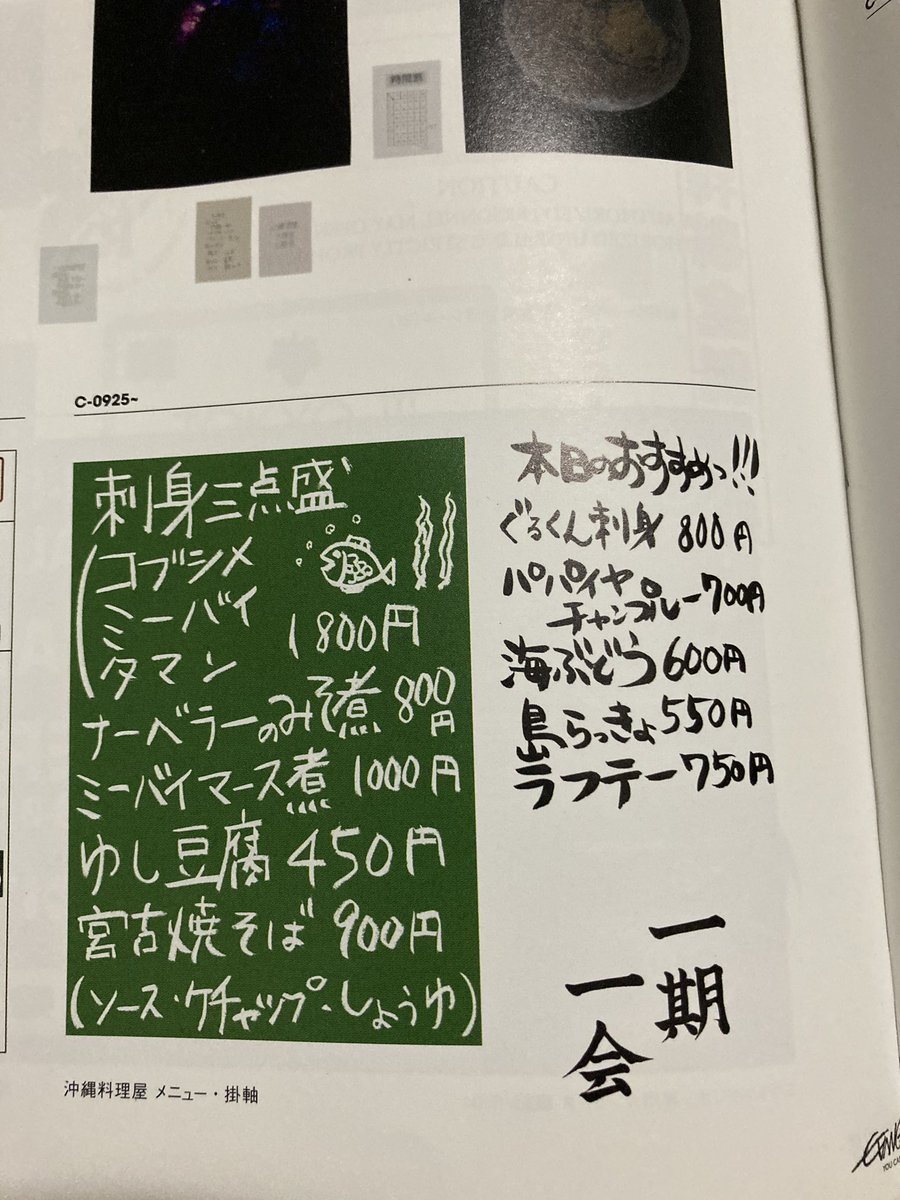 時間割
C-0925~
刺身三点盛
コブシメ
ミーバイ
タマン
1800円
ナーベラーのみそ煮 800円
ミーバイマース煮 1000円
ゆし豆腐 450円
宮古焼そば 900円
(ソース・ケチャップ・しょうゆ)
本日のおすすめっ!!!
ぐるくん刺身 800円
パパイヤ
チャンプルー 700円
海ぶどう 600円
島らっきょ 550円
ラフテー 750円
一期
一会
沖縄料理屋 メニュー・掛軸